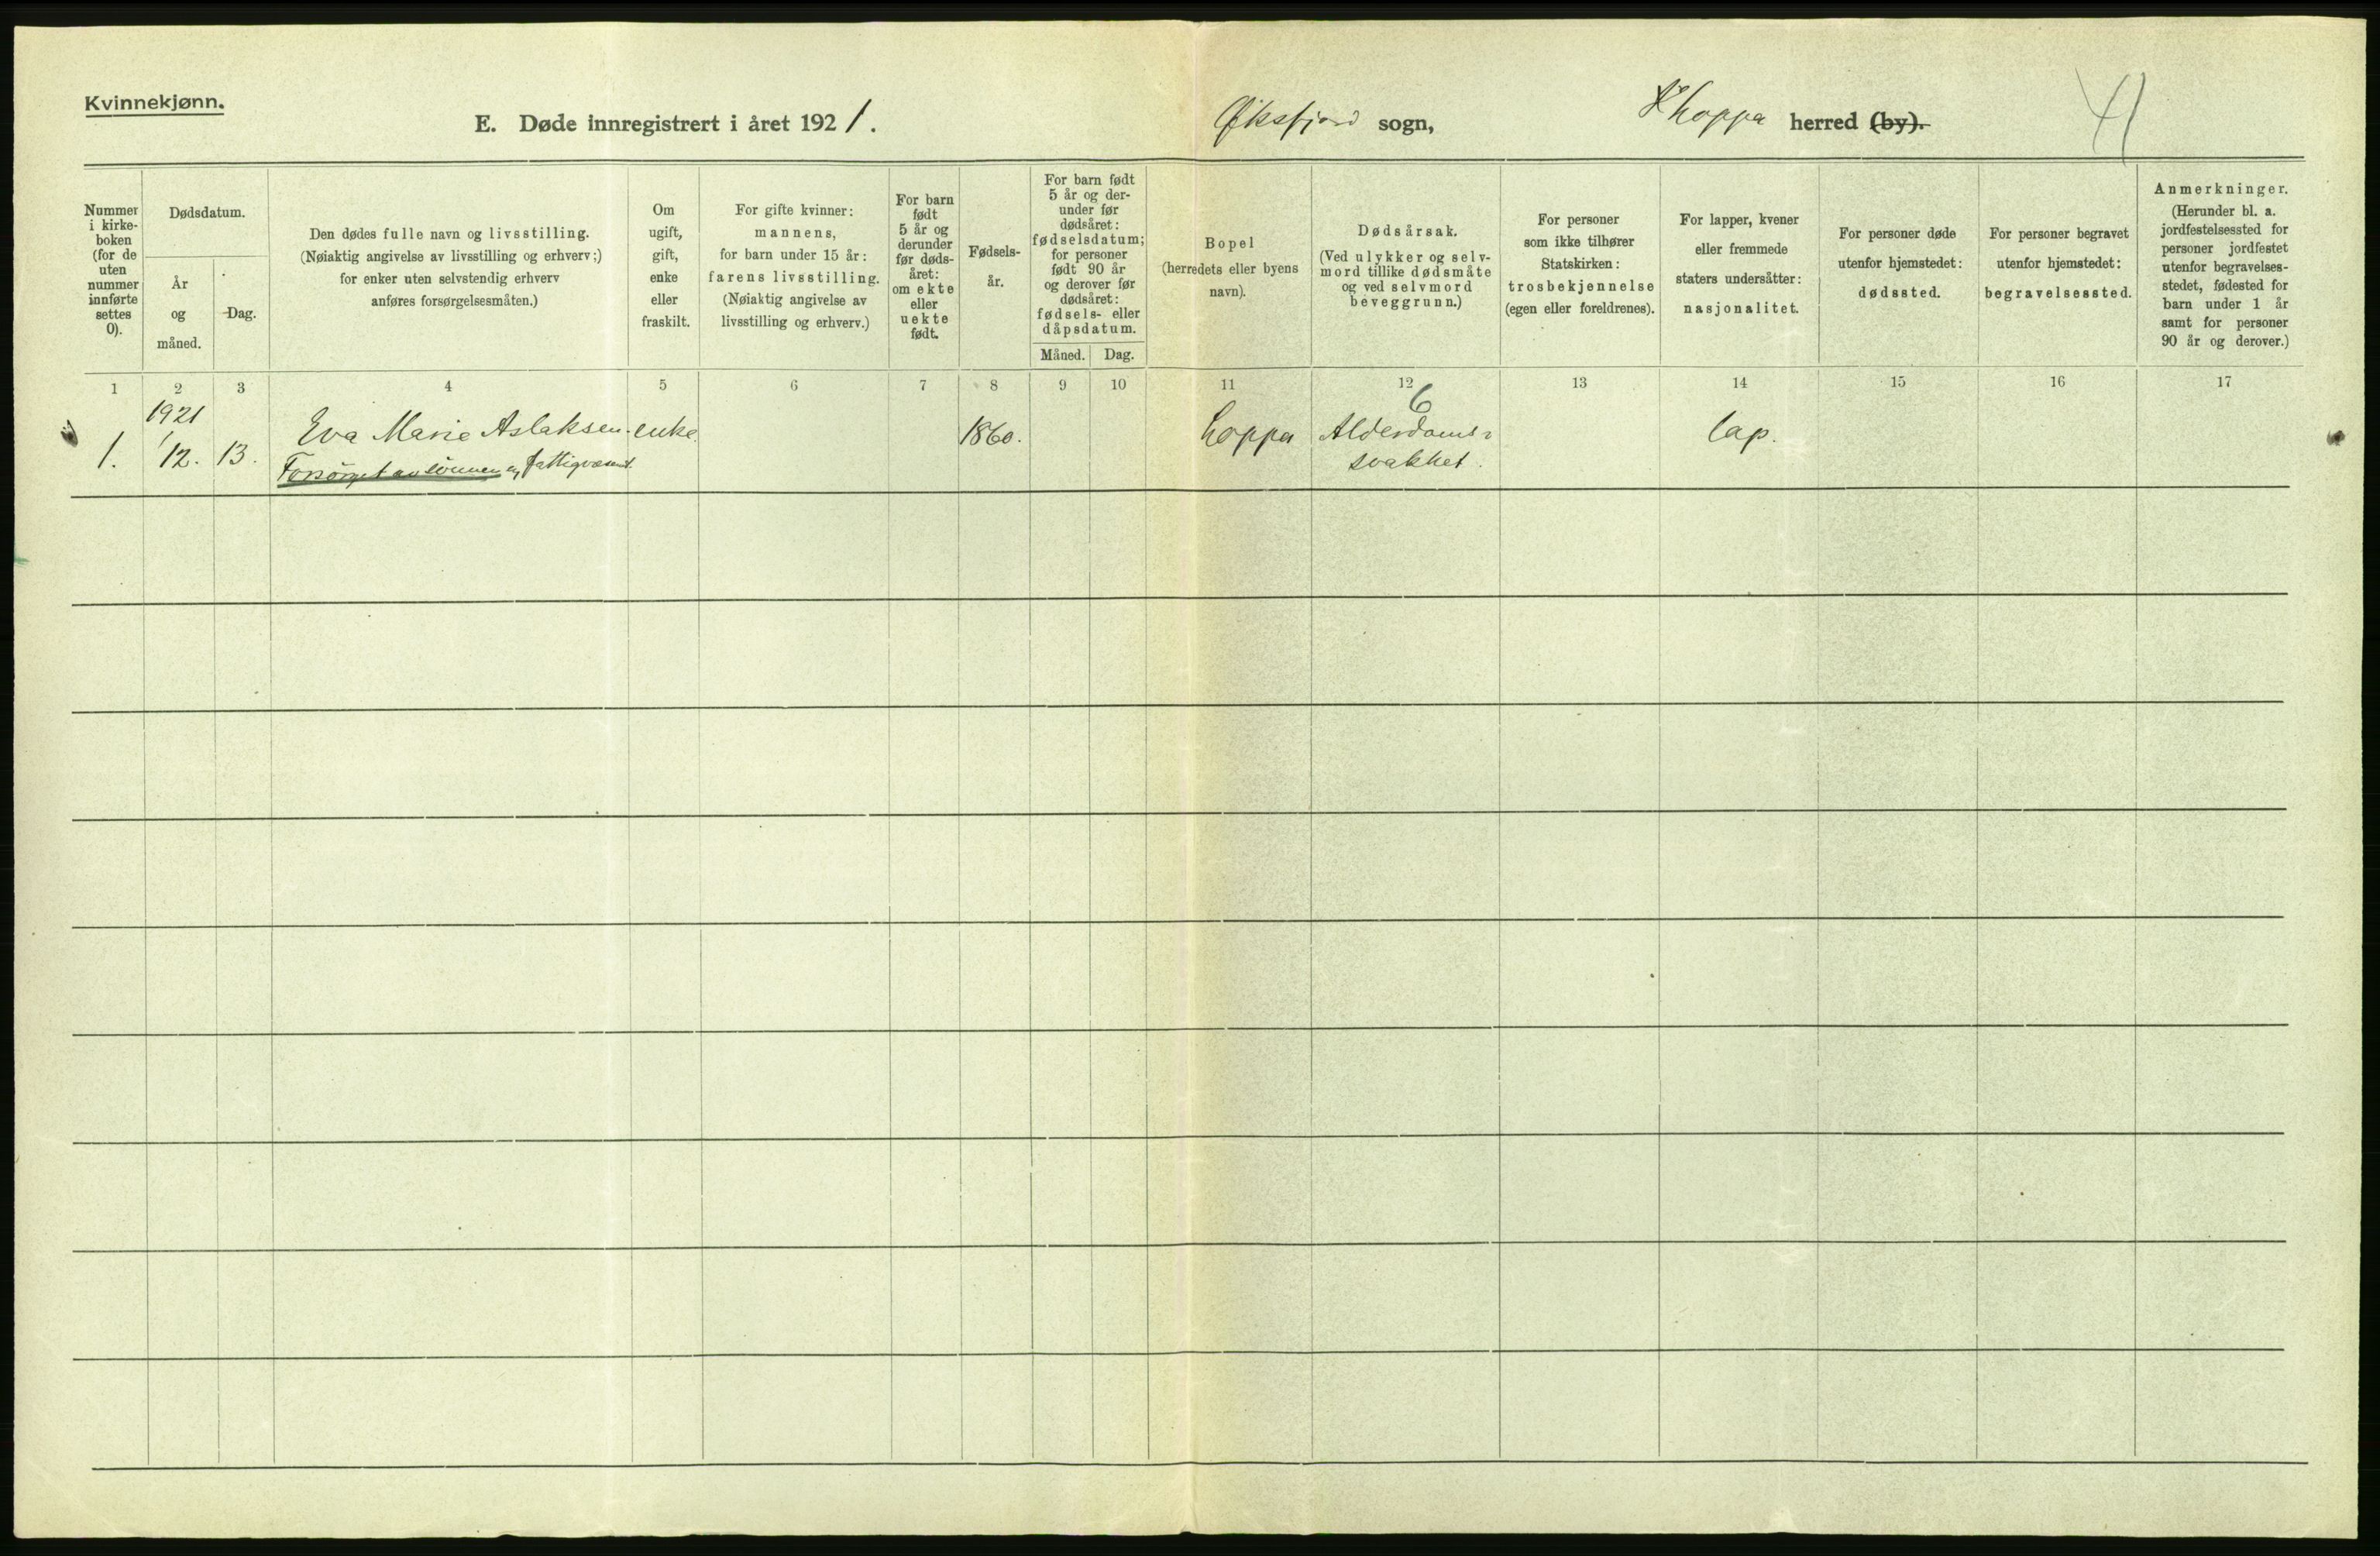 Kvinnekjønn.
E. Døde innregistrert i året 1921. Øksfjord sogn, Loppa herred (by).
Nummer i kirkeboken (for de uten nummer innførte settes 0).
Dødsdatum.
År og måned.
Dag.
Den dødes fulle navn og livsstilling.
(Nøiaktig angivelse av livsstilling og erhverv;)
for enker uten selvstendig erhverv
anføres forsørgelsesmåten.)
Om
ugift,
gift,
enke
eller
fraskilt.
For gifte kvinner:
mannens,
for barn under 15 år:
farens livsstilling.
(Nøiaktig angivelse av
livsstilling og erhverv.)
For barn
født
5 år og
derunder
før døds-
året:
om ekte
eller
uekte
født.
Fødsels-
år.
For barn født
5 år og der-
under før
dødsåret:
fødselsdatum;
for personer
født 90 år
og derover før
dødsåret:
fødsels- eller
dåpsdatum.
Måned. Dag.
Bopel
(herredets eller byens
navn).
Dødsårsak.
(Ved ulykker og selv-
mord tillike dødsmåte
og ved selvmord
beveggrunn.)
For personer
som ikke tilhører
Statskirken:
trosbekjennelse
(egen eller foreldrenes).
For lapper, kvener
eller fremmede
staters undersåtter:
nasjonalitet.
For personer døde
utenfor hjemstedet:
dødssted.
For personer begravet
utenfor hjemstedet:
begravelsessted.
Anmerkninger.
(Herunder bl. a.
jordfestelsessted for
personer jordfestet
utenfor begravelses-
stedet, fødested for
barn under 1 år
samt for personer
90 år og derover.)
1 2 3 4 5 6 7 8 9 10 11 12 13 14 15 16 17
1921 6
1. 12. 13. Eva Marie Aslaksen. enke. 1860. Loppa Alderdoms- lap.
Forsørget av sönnen og fattigvæsenet. svakhet.